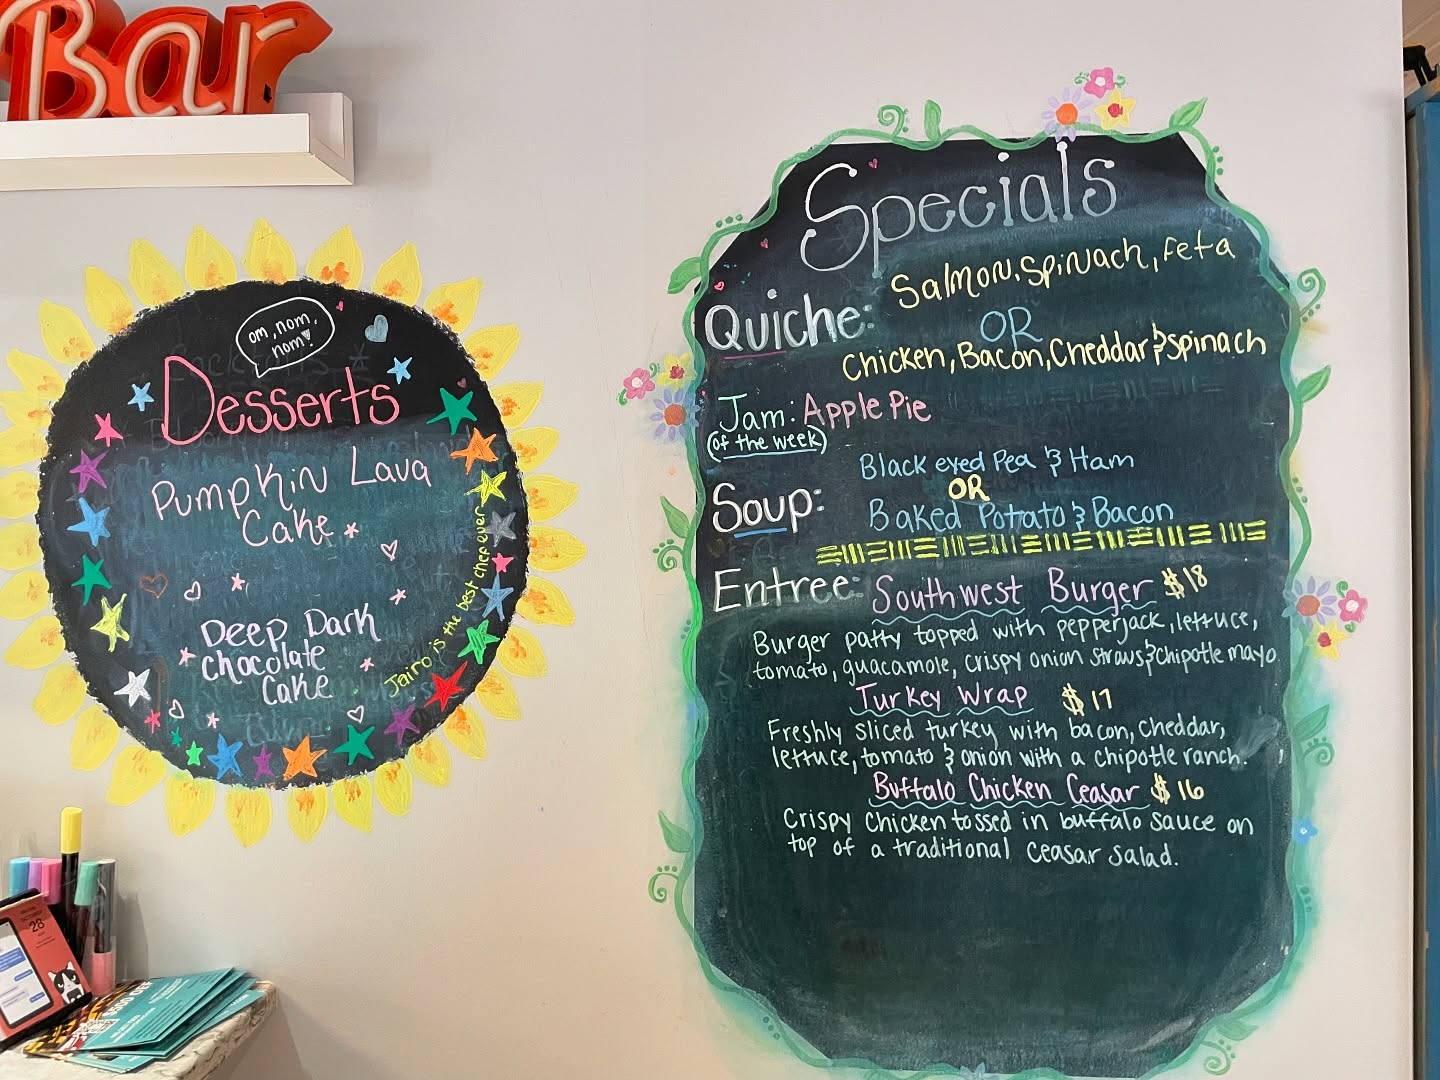 Bar
om, nom,
nom!
Desserts
Pumpkin Lava
Cake
Deep Dark
chocolate
Cake
Jairo is the best chef ever
Specials
Quiche:
Salmon, Spinach, Feta
OR
Chicken, Bacon, Cheddar & Spinach
Jam: Apple Pie
(of the week)
Soup:
Black eyed Pea & Ham
OR
Baked Potato & Bacon
Entree: Southwest Burger $18
Burger patty topped with pepperjack, lettuce,
tomato, guacamole, crispy onion straws & chipotle mayo
Turkey Wrap $17
Freshly sliced turkey with bacon, cheddar,
lettuce, tomato & onion with a chipotle ranch.
Buffalo Chicken Ceasar $16
Crispy chicken tossed in buffalo sauce on
top of a traditional Ceasar salad.
28